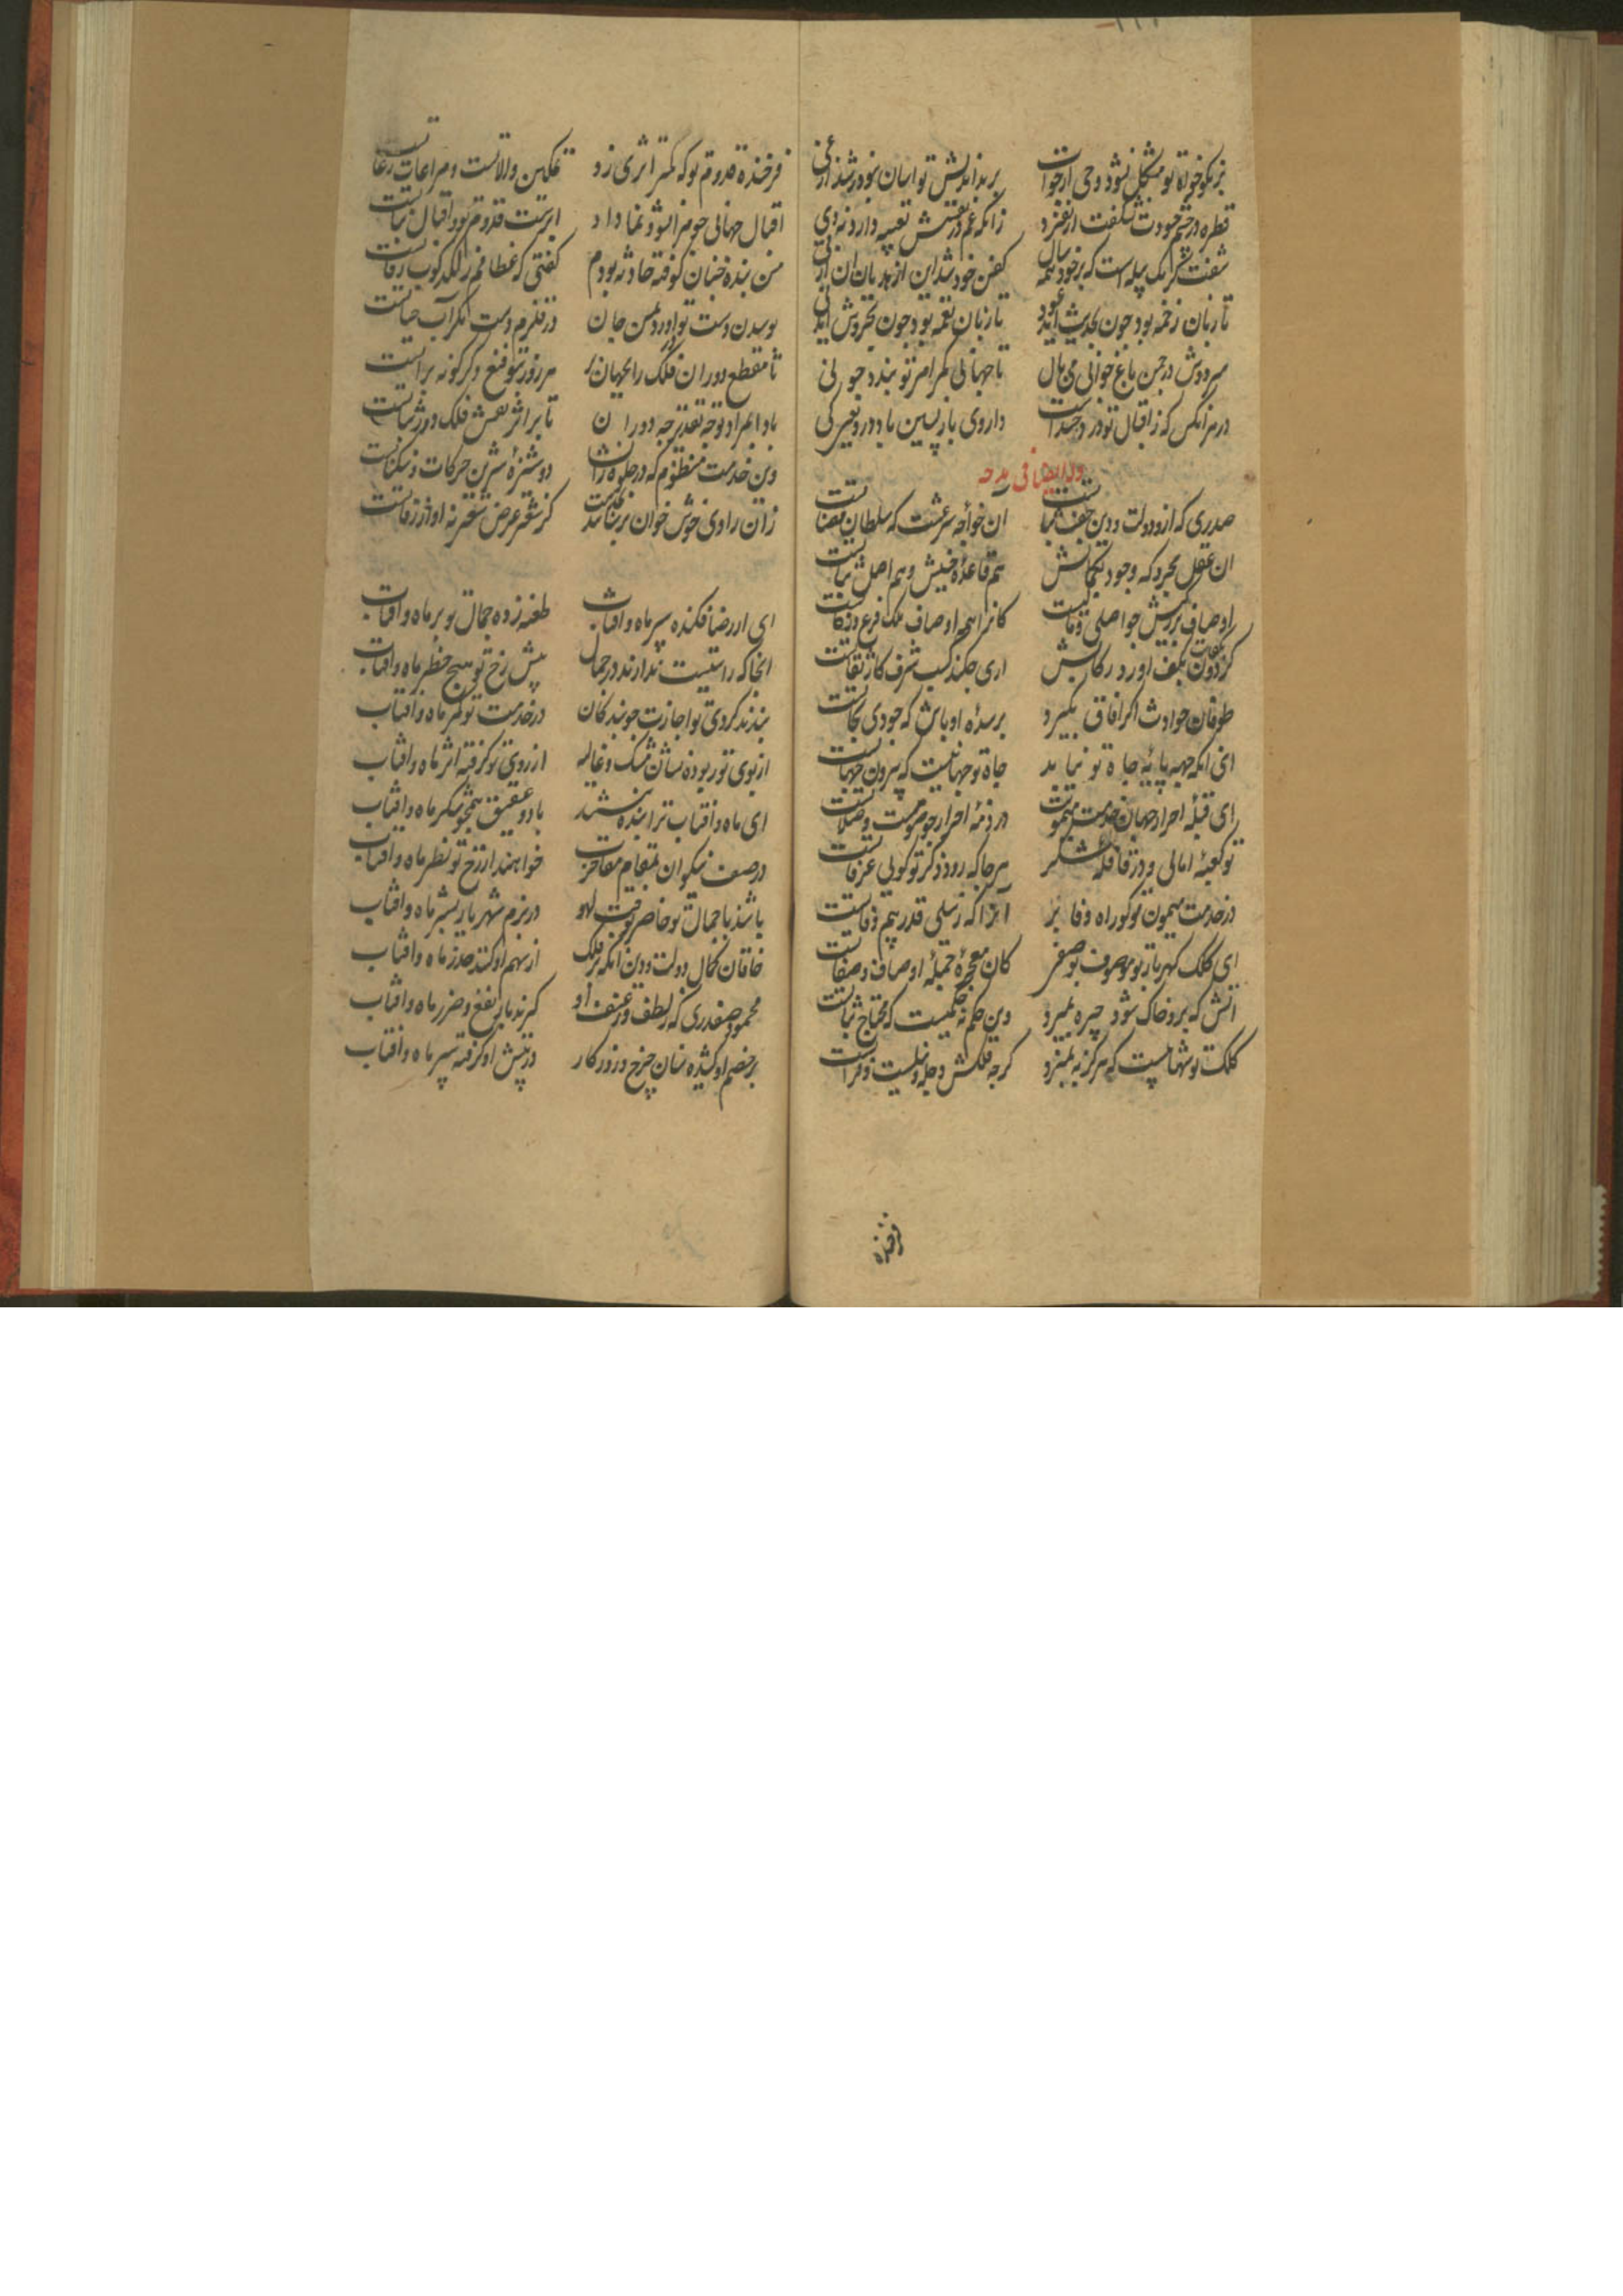 بر نیکوخواه تو مشکل نشود وحی از خواب
بر بداندیش تو آسان نبود
قطره در چشم حسودت نشگفت ار بفسرد
زانکه غم در نفسش تعبیه دارد نه دی
کفن خود تند این از هذیان آن از
تا زبان زخمه بود چون بحدیث آید عود
تا زبان نغمه بود چون بخروش آید نی
سرو دوش در چمن باغ جوانی می بال
تا جهانی کمر امر تو بندد چو نی
در هر آنکس که ز اقبال تو در وجد است
داروی باز پسین باد درو یعنی کی
وله ایضا فی مدحه
صدری که ازو دولت و دین جفت ثباتست
آن خواجه شرعست که سلطان قضاتست
آن عقل مجرد که وجود بکمالش
هم قاعده خیش و هم اصل ثباتست
راوصاف بزرگیش چو اصلی و
کانرا همه اوصاف ملک فرع و زکاتست
گردون بکف آورد رکابش
اری چکند کسب شرف کار ثقاتست
طوفان حوادث اگر آفاق بگیرد
بر سده او باش که جودی نجاتست
ای آنکه جهه پایه جاه تو نیابد
جاه تو جهانیست که بیرون جهاتست
ای قبله احرار جهان خدمت میمونت
در ذمه احرار چو صومست و صلاتست
تو کعبه امالی و در قافله شکر
هر جا که رود ذکر تو گویی عرفاتست
در خدمت میمون تو گو راه وفا بر
آنرا که ز سلی قدر بیم وفاتست
ای کلک گهربار تو موصوف بوصفی
کان معجزه جمله اوصاف و صفاتست
آتش که برو خاک شود چیره بمیرد
وین حکم نه حکمیست که محتاج ثباتست
کلک تو شهابیست که هرگز بنمیرد
گرچه فلکش دجله و نیلست و فراتست
فرخنده
فرخنده قدوم تو که کمتر اثری زو
تمکین ولاتست و مراعات رعاتست
اقبال جهانی چو مرا نشو و نما داد
ابریست قدوم تو و اقبال نباتست
من بنده چنان کوفته حادثه بودم
گفتی که عظامم ز لگدکوب رفاتست
بوسیدن دست تو اورد بمن جان
در قلزم دست مگر آب حیاتست
تا مقطع دوران فلک را بجهان در
هر روز بنو فتح دگرگونه براتست
بادا بمراد تو چه تقدیر چه دوران
تا بر اثر نعش فلک دور بناتست
وین خدمت منظوم که در جلوه انشا
دوشیزه شیرین حرکات و سکناتست
زان راوی خوش خوان نرسانید بخدمت
کز شعر عرض شعر نه آواز رواتست
ای از رضا فکنده سپر ماه و آفتاب
طعنه زده جمال تو بر ماه و آفتاب
آنجا که راستیست ندارند در جمال
پیش رخ تو هیچ خطر ماه و آفتاب
بندند گرد روی تو اجازت چو بندگان
در خدمت تو کمر ماه و آفتاب
از بوی تو ربوده نشان مشک و غالیه
از روی تو گرفته اثر ماه و آفتاب
ای ماه و آفتاب ترا بنده تر شدند
با دو عقیق همچو شکر ماه و آفتاب
در صف نیکوان بمقام مفاخرت
خواهند از رخ تو نظر ماه و آفتاب
باشند با جمال تو حاضر بوقت لهو
در بزم شهریار بشر ماه و آفتاب
خاقان کمال دولت و دین آنکه بر فلک
از سهم او کنند حذر ماه و آفتاب
محمود صفدری که ز لطف و ز عنف او
گیرند مایه نفع و ضرر ماه و آفتاب
بر خصم او کشیده سنان چرخ و روزگار
در پیش او گرفته سپر ماه و آفتاب